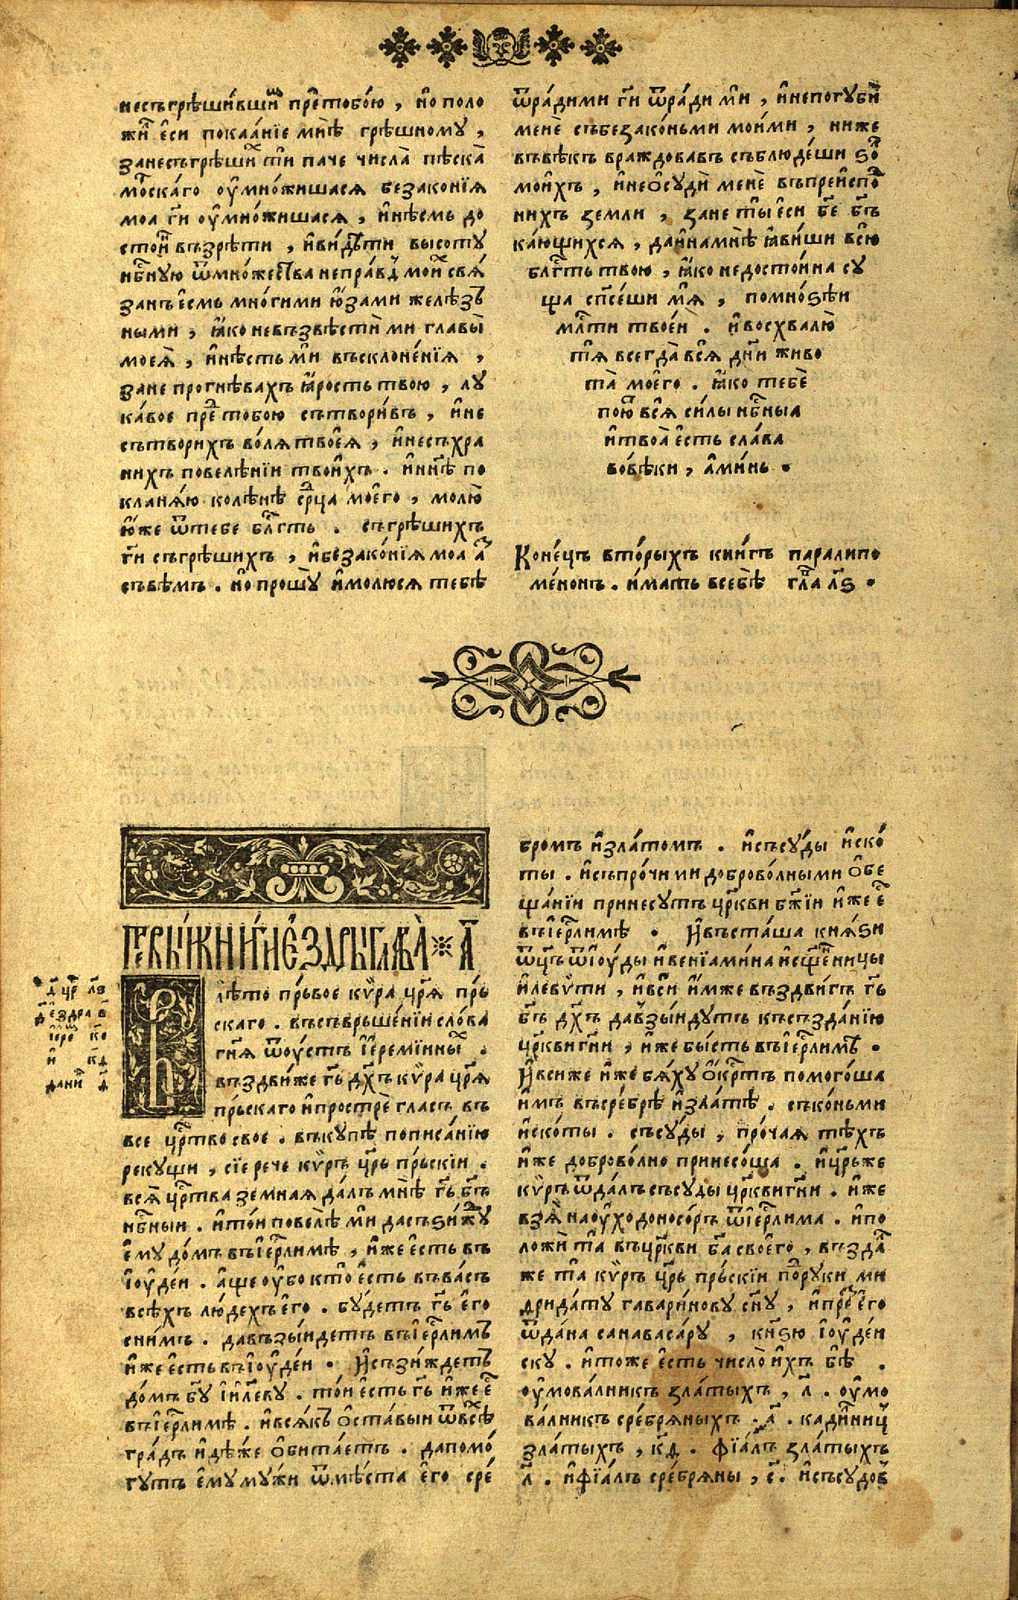 несъгрѣши́вши҆ⷯ пре́тобо́ю , но̀ поло
жи́л є҆сѝ покаа́нїе мнѣ̀ грѣ́шному ,
занесъгрѣши́хⷯ ти паче числа̀ пѣска̀
мо́рⷭскаго оу҆мно́жишася безако́нїѧ
моа гⷭ҇и оу҆мно́жишася , и҆нѣ́смь до
сто́инъ възрѣ́ти , и҆ви́дѣти высоту̀
нбⷭ҇ную ѿмно́жества непра́вдъ мои́хъ свѧ́
занъ є҆смь мно́гими ю҆́зами желѣ́зъ
ными , ꙗ҆́ко невъзвѣстѝ ми главы̀
моеѧ̀ , и҆нѣ́сть мѝ въсклоне́нїѧ ,
зане прогнѣ́вахъ ꙗ҆́рость твою , лу
ка́вое преⷣ тобою сътвори́въ , и҆не
сътворихъ во́лѧ твоеѧ̀ , и҆несъхра
нихъ повелѣ́нїи твои́хъ . и҆нн҃ѣ по
кланѧ́ю колѣ́нѣ срⷣца мое҆го , молю̀
ю҆́же ѿтебе блгⷣть . съгрѣ́шихъ
гⷭ҇и съгрѣ́шихъ , и҆безако́нїѧ моа а҆́зъ
съвѣ́мъ . но̀ прошу̀ и҆молюся тебѣ̀
ѿра́дими гⷭ҇и ѿра́ди мѝ , и҆непогубѝ
менѐ събезако́ньми мои́ми , ниже
въвѣ́къ враждовавъ съблюде́ши ѕо́
мои́хъ , и҆нео҆судѝ менѐ въпреи́спо
нихъ земли , зане ты̀ є҆си бг҃ъ бг҃ъ
ка́ющихся , даи́намнѣ̀ ꙗ҆ви́ши всю̀
блгⷣть твою , ꙗ҆́ко недосто́ина су
ща сп҃се́ши мѧ̀ , помно́ѕѣи
млⷭ҇ти твое́и . и҆восхвалю̀
тѧ̀ всегда̀ всѧ̀ дн҃и живо
та̀ мое҆го . ꙗ҆́ко тебѐ
пою́тъ всѧ̀ силы нбⷭ҇ныа
и҆твоа̀ є҆сть сла́ва
вовѣ́ки , а҆ми́нь .
Коне́цъ вто́рыхъ кни́гъ паралипо
ме́нонъ . и҆мать всебѣ̀ гла҃ л҃ѕ .
Пе́рвыѧ кни́ги є҆́здры глава̀ а҃
Влѣ́то пе́рвое кѵ́ра цр҃ѧ пе́рь
скаго . въсъвръше́нїи сло́ва
гн҃ѧ ѿоу҆стъ і҆еремі́инныⷯ .
въздви́же гь҃ дх҃ъ кѵ́ра цр҃ѧ
пе́рьскаго и҆прострѐ гласъ въ
все црⷭ҇тво свое . въку́пѣ пописа́нїю
рекущи , сїе рече кѵ́ръ цр҃ь пе́рьскїи .
всѧ̀ црⷭ҇тва земнаѧ да́лъ мнѣ̀ гь҃ бг҃ъ
нбⷭ҇ныи . и҆то́и повелѣ̀ мѝ дасъзи́жду
є҆му до́мъ въі҆ерⷭ҇лимѣ , и҆́же є҆сть въ
і҆оу҆де́и . а҆ще оу҆бо кто̀ є҆сть въва́съ
всѣ́хъ лю́дехъ є҆го . бу́детъ гь҃ є҆го
сни́мъ . давъзы́идетъ въі҆ерⷭ҇лимъ
и҆же є҆сть въі҆оу҆де́и . И҆съзи́ждетъ
до́мъ бг҃у і҆и҃леву . то́и є҆сть гь҃ и҆́же є҆́
въі҆ерⷭ҇лимѣ . и҆всѧ́къ о҆ста́выи ѿвсѣ̀
гра́дъ и҆дѣ́же о҆бита́етъ . дапомо́
гутъ є҆му му́жи ѿмѣ́ста є҆го сре́
бромъ и҆зла́томъ . и҆съсу́ды и҆ско́
ты . и҆съпро́чими доброво́лными о҆бе
ща́нїи принесу́тъ цр҃кви бж҃їи и҆́же є҆́
въі҆ерⷭ҇лимѣ . И҆въста́ша кнѧ́ѕи
ѿц҃ъ ѿі҆оу́ды и҆венїами́на и҆сщ҃е́нницы
и҆леѵ́ти , и҆всѝ и҆́мже въздви́гъ гь҃
бг҃ъ дх҃ъ давзы́идутъ късъзда́нїю
цр҃квигн҃и , и҆́же бы́сть въі҆ерⷭ҇лимѣ .
И҆всиже и҆́же бѧ́ху о҆́крⷭ҇тъ помого́ша
и҆мъ въсребрѣ̀ и҆зла́тѣ . съко́ньми
и҆ско́ты . съсу́ды , про́чаѧ тѣ́хъ
и҆же доброво́лно принесо́ша . и҆цр҃ьже
кѵ́ръ ѿда́лъ съсуды цр҃квигн҃и . и҆же
взѧ̀ наоу҆ходоносо́ръ ѿі҆ерⷭ҇лима . и҆по
ложѝ та̀ въцр҃кви бг҃а свое҆го , възда́л
же та̀ кѵ́ръ цр҃ь пе́рьскїи поⷣру́ки ми
дрида́ту гавари́нову сн҃у , и҆преⷣ є҆го
ѿда́на санавасару , кнѧ́ѕю і҆оу҆де́и
ску . и҆тоже є҆сть число̀ и҆хъ бѣ̀ .
оу҆мова́лникъ златы́хъ , л҃ . оу҆мо
ва́лникъ сре́бряныхъ . а҃ . кади́лниц
златы́хъ , к҃д . фїа́лъ златы́хъ
л҃ . и҆фїа́лъ сре́бряны , с҃ . и҆съсудо́в